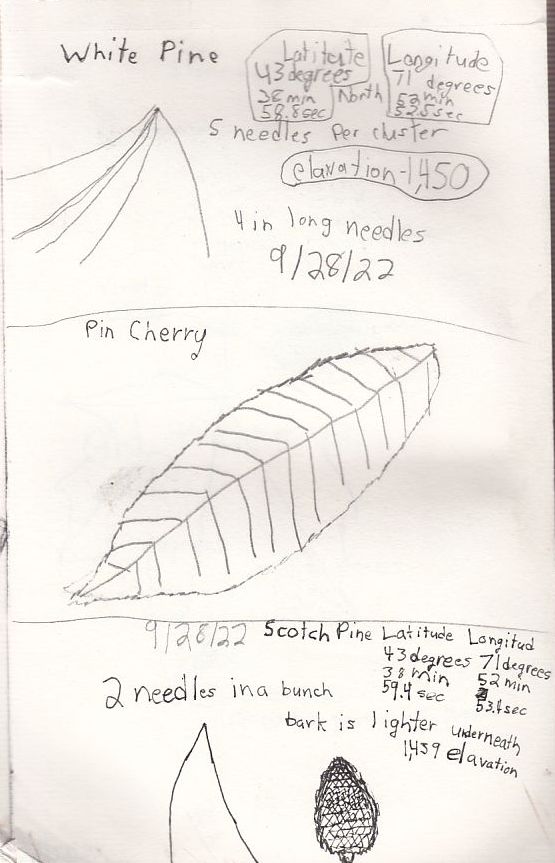 White Pine
Latitute
43 degrees
38 min
58.8 sec
North
Longitude
71
degrees
52 min
52.5 sec
5 needles Per cluster
elavation-1,450
4 in long needles
9/28/22
Pin Cherry
9/28/22
Scotch Pine
Latitude
43 degrees
38 min
59.4 sec
Longitud
71 degrees
52 min
53.1 sec
2 needles in a bunch
bark is lighter underneath
1,459 elavation